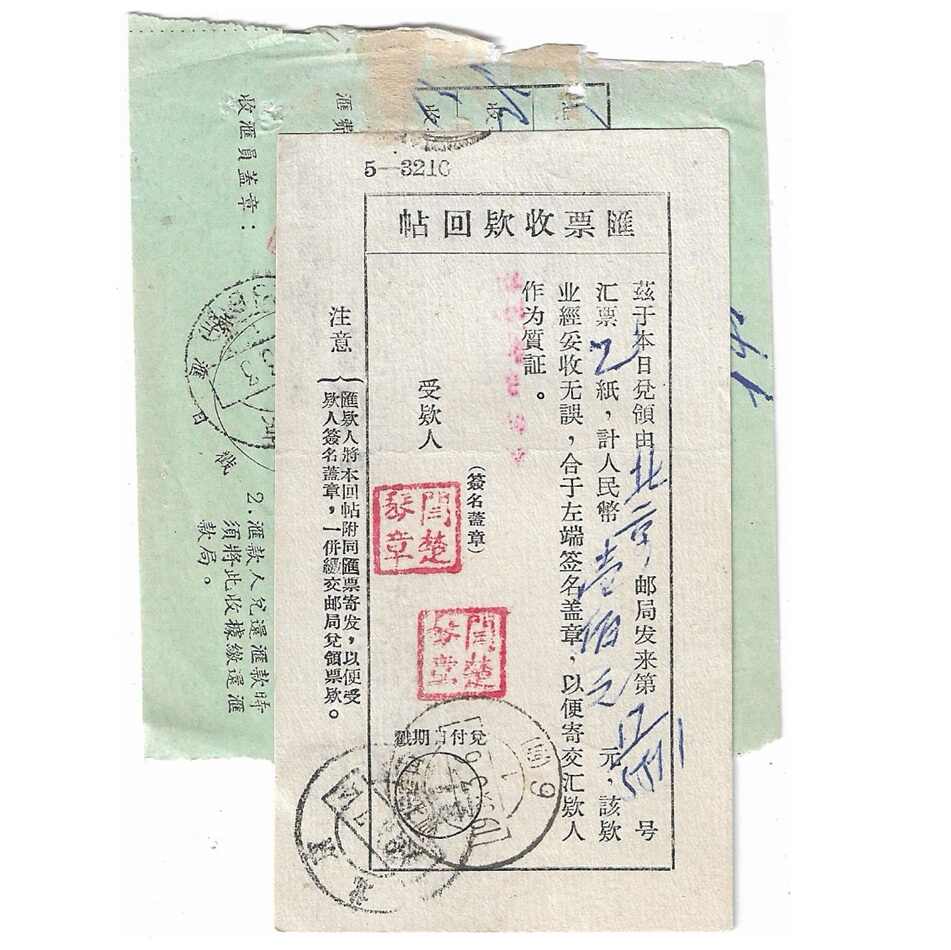 5—3210
匯票收欵回帖
茲于本日兌領由北京邮局发来第 号
汇票乙紙，計人民幣壹佰元 元，該欵
业經妥收无誤，合于左端签名盖章，以便寄交汇欵人
作为質証。
（簽名蓋章）
受欵人
閻楚
琴章
閻楚
琴章
兌付日期戳
注意
匯欵人將本回帖附同匯票寄发，以便受
欵人簽名蓋章，一併繳交邮局兌領票欵。
匯費
收匯員盖章：
匯日戳
2.滙款人兌還滙款時
須將此收據繳還滙
款局。